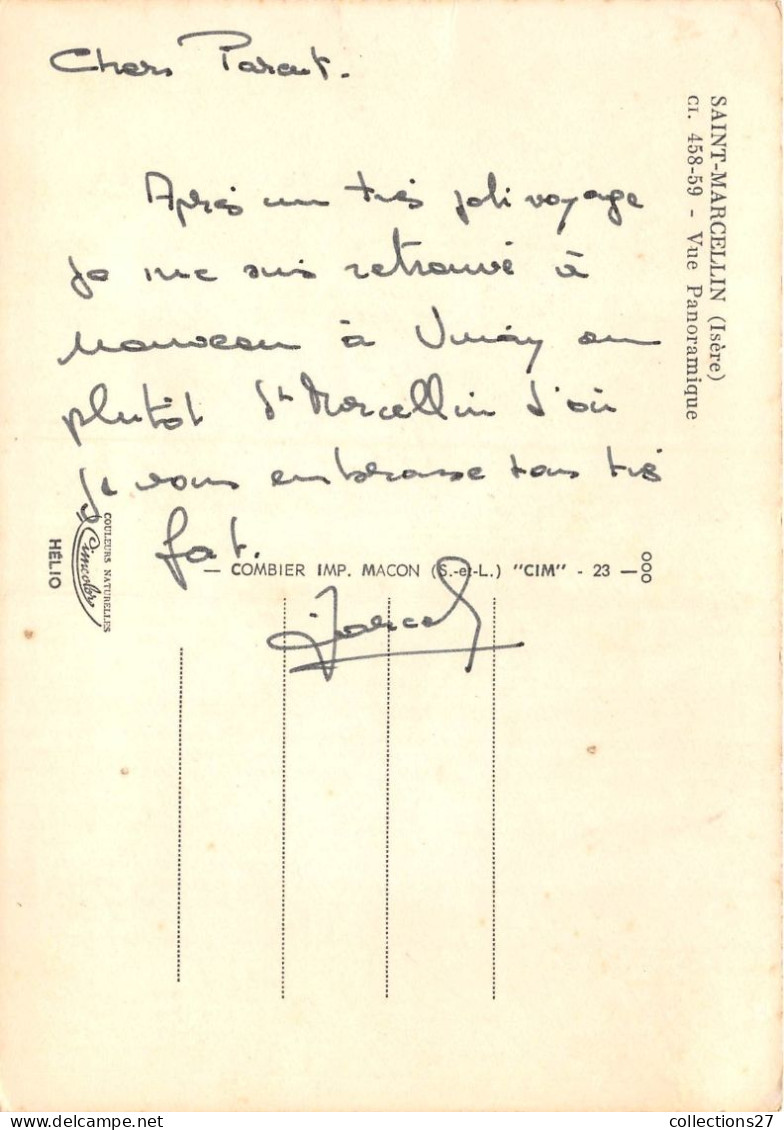 Chers Parent.
Après un très joli voyage
je me suis retrouvé à
nouveau à Vinay ou
plutôt St Marcellin d'où
je vous embrasse tous très
fort.
Marcel
SAINT-MARCELLIN (Isère)
CI. 458-59 - Vue Panoramique
COULEURS NATURELLES
Cimcolor
HÉLIO
— COMBIER IMP. MACON (S.-et-L.) "CIM" - 23 —
000
collections27